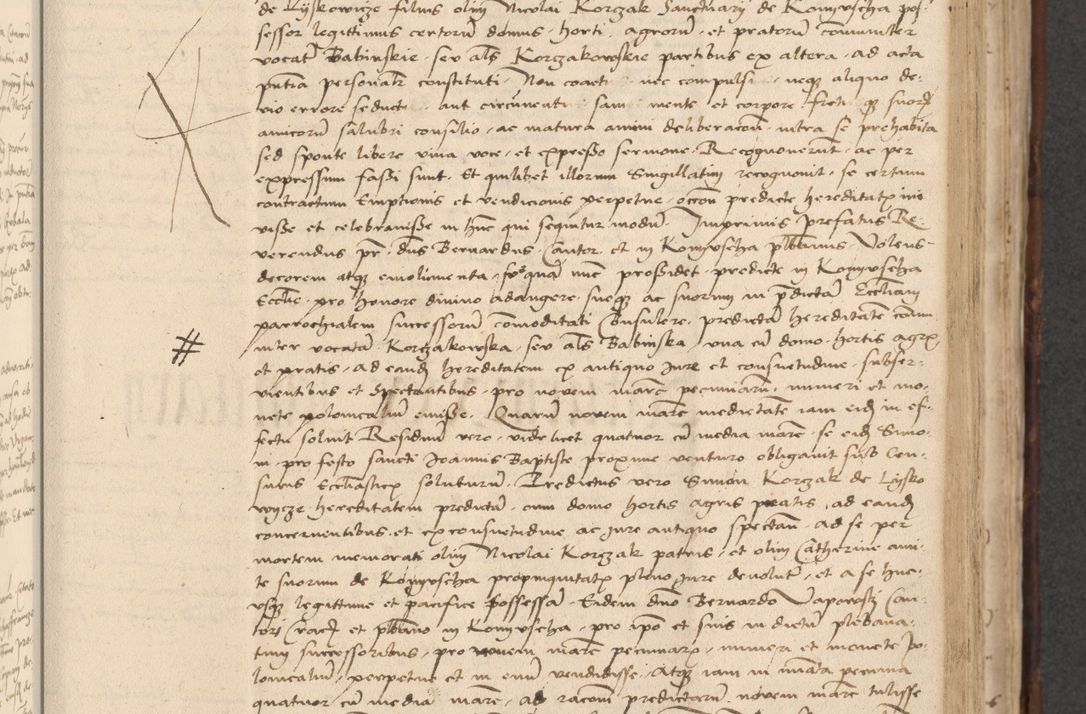 de Lyskowicze filius olim Nicolai Korczak Sanctuarii de Komyuscha pos-
sessor legittimus certorum domus horti agrorum et pratorum communiter
vocat Babinskie seu als Korczakowskie partibus ex altera ad acta
pntia personalr constituti Non coacti nec compulsi neqz aliquo de-
vio errore seducti aut circumuenti sani mente et corpore freti qz suorum
amicorum salubri consilio ac matura animi deliberacon intra se prehabita
sed sponte libere viua voce et expresso sermone Recognouerunt ac per
expressum fassi sunt Et quilibet illorum Singillatim recognouit se certum
contractum Emptionis et vendicionis perpetue occon predicte hereditatis inis
uisse et celebrauisse in hunc qui sequitur modum Imprimis prefatus Re-
verendus pr dns Bernardus Cantor et in Komyuscha plbanus Volens
decorem atqz emolimenta quam nunc possidet predicte in Komyuscha
Ecclie pro honore diuino adangere sueqz ac suorum in pdicta Eccliam
parrochialem successorum comoditati Consulere predictam hereditatem comu-
niter vocatam Korczakowska seu als Babinska vna cum domo hortis agris
et pratis ad eandem hereditatem ex antiquo Jure et consuetudine subser-
uientibus et spectantibus pro nouem marc pecuniarum numeri et mo-
nete polonicalium emisse Quarum nouem marc medietatem iam eidem in ef-
fectu soluit Residuum vero videlicet quatuor cum media marc se eidem Simo-
ni pro festo sancti Joannis Baptiste proxime venturo obligauit sub Cen-
suris Ecclasticis soluturum Predictus vero Simon Korczak de Lysko
wycze hereditatem predictam cum domo hortis agris pratis ad eandem
concernentibus et ex consuetudine ac Jure antiquo spectan ad se per
mortem memorati olim Nicolai Korczak patrui et olim Catherine ami-
te suorum de Komyuscha propinquitatis pleno Jure deuolut et a se huc-
usqz legittime et pacifice possessam Eidem dno Bernardo Vapowski Can-
tori Crac et plbano in Komyuscha pro ipo et suis in dictum plebana-
tum successoribus pro nouem marc pecuniarum numeri et monete Po-
lonicalium perpetue et in euum vendidisse Atqz iam in pecunia
quatuor cum media marc ad racom predictarum nouem marc tulisse
#